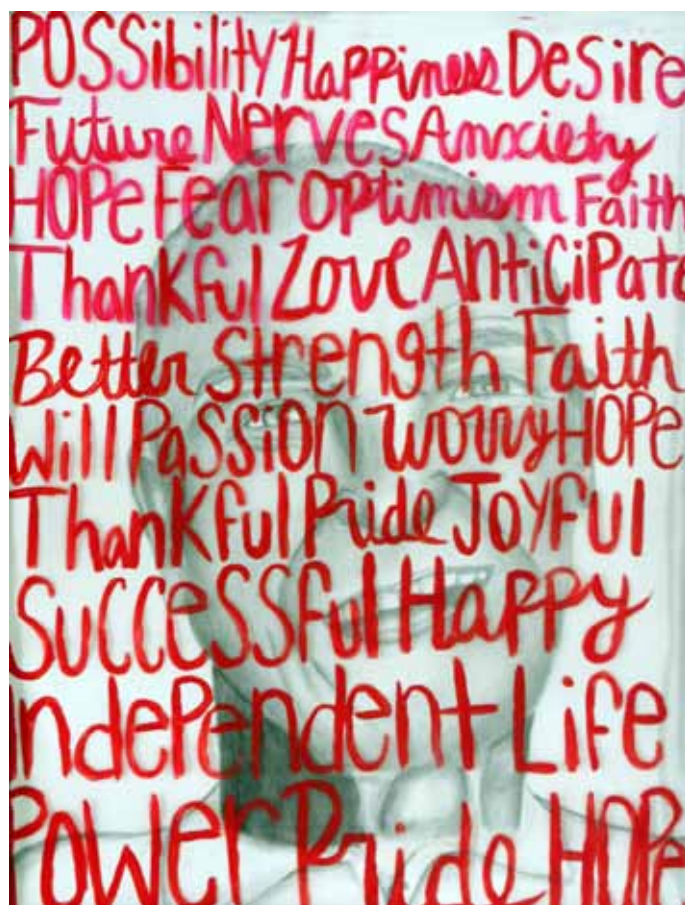 POSSibiliTY HaPPiness DeSire
Future NerveS Anxciety
HOPe Fear OPtimism Faith
Thankful Love AnticiPate
Better Strength Faith
Will PaSSiOn worry HOPe
Thankful Pride JOYFul
SuCCeSSful Happy
IndePendent Life
POWer Pride HOPe